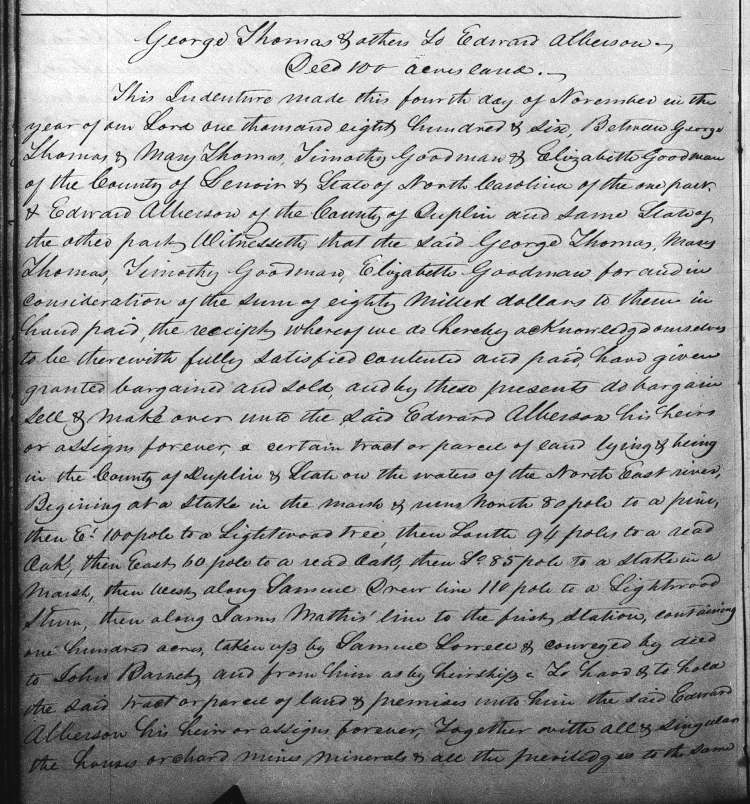 George Thomas & others to Edward Alberson
Deed 100 acres land.
This Indenture made this fourth day of November in the
year of our Lord one thousand eight hundred & six, Between George
Thomas & Mary Thomas, Timothy Goodman & Elizabeth Goodman
of the County of Lenoir & State of North Carolina of the one part
& Edward Alberson of the County of Duplin and same State of
the other part, Witnesseth, that the said George Thomas, Mary
Thomas, Timothy Goodman, Elizabeth Goodman for and in
consideration of the sum of eighty Milled dollars to them in
hand paid, the receipt whereof we do hereby acknowledg ourselves
to be therewith fully satisfied contented and paid, have given
granted bargained and sold, and by these presents do bargain
sell & make over unto the said Edward Alberson his heirs
or assigns forever, a certain tract or parcel of land lying & being
in the County of Duplin & State on the waters of the North East river,
Begining at a stake in the marsh & runs North 80 pole to a pine,
then Et. 100 pole to a Lightwood tree, then South 94 poles to a read
Oak, then East 60 pole to a read Oak, then So. 85 pole to a stake in a
Marsh, then West along Samuel Drew line 110 pole to a Lightwood
Stum, then along Mathis' line to the first station, containing
one hundred acres, taken up by Samuel & conveyed by died
to John Barnet, and from him as by heirship To have & to hold
the said tract or parcel of land & premises unto him the said Edward
Alberson his heirs or assigns forever, Together with all & singular
the houses orchard mines minerals & all the previledges to the same